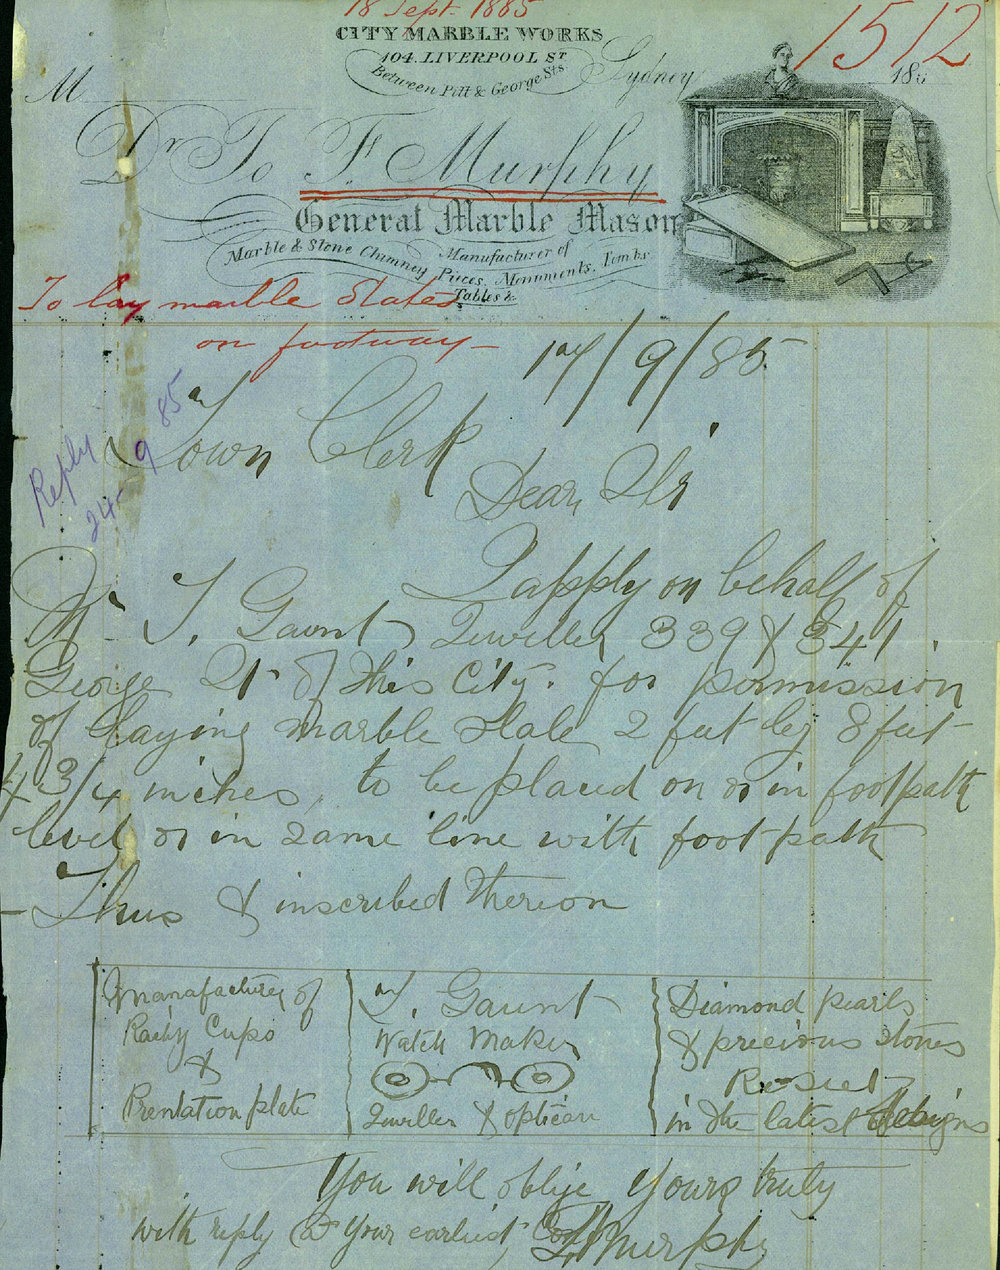 18 Sept. 1885
1512
CITY MARBLE WORKS
104. LIVERPOOL ST
Between Pitt & George Sts
Sydney 18
M
Dr To F. Murphy
General Marble Mason
Manufacturer of
Marble & Stone Chimney Pieces, Monuments, Tombs
Tables &
To lay marble Slates
on footway
17/9/85
Reply
24 9 85
Town Clerk
Dear Sir
I apply on behalf of
Mr T. Gaunt Jeweller 339 & 341
George St of this City. for permission
of laying marble slate 2 feet by 8 feet
4 3/4 inches, to be placed on or in footpath
level or in same line with foot path
Thus & inscribed thereon
Manafacturer of
Racing Cups
&
Prentation plate
T. Gaunt
Watch Maker
Jeweller & optican
Diamond pearls
& precious stones
Re-Set
in the latest designs
You will oblige Yours truly
with reply @ your earliest
F Murphy